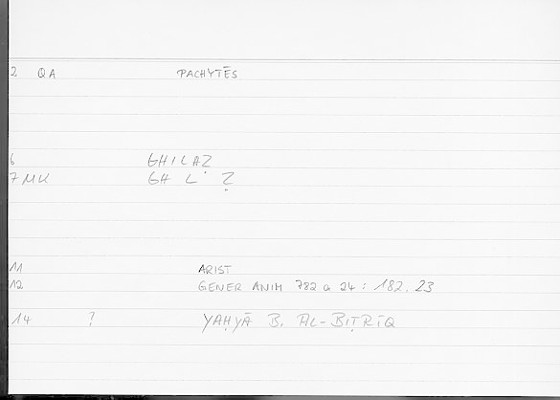 2 QA PACHYTĒS
6 GHILAZ
7 MK GH L Ẓ
11 ARIST
12 GENER ANIM 782 a 24 : 182.23
14 ? YAḤYĀ B. AL-BIṬRĪQ